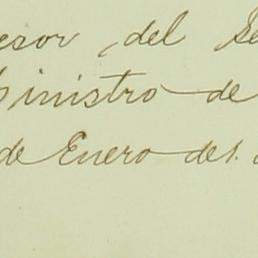 esor del Se
inistro de
de Enero del.